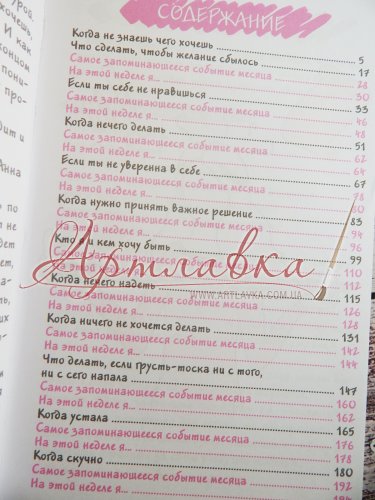 СОДЕРЖАНИЕ
Когда не знаешь чего хочешь 5
Что сделать, чтобы желание сбылось 17
Самое запоминающееся событие месяца 28
На этой неделе я... 30
Если ты себе не нравишься 33
Самое запоминающееся событие месяца 46
На этой неделе я... 48
Когда нечего делать 51
Самое запоминающееся событие месяца 62
На этой неделе я... 64
Если ты не уверенна в себе 67
Самое запоминающееся событие месяца 78
На этой неделе я... 80
Когда нужно принять важное решение 83
Самое запоминающееся событие месяца 94
На этой неделе я... 96
Кто я и кем хочу быть 99
Самое запоминающееся событие месяца 110
На этой неделе я... 112
Артлавка
WWW.ARTLAVKA.COM.UA
Когда нечего надеть 115
Самое запоминающееся событие месяца 126
На этой неделе я... 128
Когда ничего не хочется делать 131
Самое запоминающееся событие месяца 142
На этой неделе я... 144
Что делать, если грусть-тоска ни с того,
ни с сего напала 147
Самое запоминающееся событие месяца 160
На этой неделе я... 162
Когда устала 165
Самое запоминающееся событие месяца 176
На этой неделе я... 178
Когда скучно 180
Самое запоминающееся событие месяца 192
На этой неделе я...